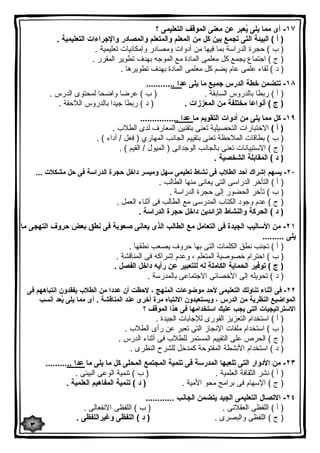 ١٧- أى مما يلى يُعبر عن معنى الموقف التعليمى ؟
( أ ) البيئة التى تجمع بين كل من المعلم والمتعلم والمصادر والإجراءات التعليمية .
( ب ) حجرة الدراسة بما فيها من أدوات ومصادر وإمكانيات تعليمية .
( ج ) اجتماع يجمع كل معلمى المادة مع الموجه بهدف تطوير المقرر .
( د ) لقاء علمى عام يضم كل معلمى المادة بهدف تطويرها .
١٨- تتضمن خطة الدرس جميع ما يلى عدا ............
( أ ) ربطا بالدروس السابقة . ( ب ) عرضا واضحا لمحتوى الدرس .
( ج ) أنواعا مختلفة من المعززات . ( د ) ربطا جيدا بالدروس اللاحقة .
١٩- كل مما يلى من أدوات التقويم ما عدا ................
( أ ) الاختبارات التحصيلية تعنى بتلقين المعارف لدى الطلاب .
( ب ) بطاقات الملاحظة تعنى بتقييم الجانب المهارى ( فعل / أداء ) .
( ج ) الاستبيانات تعنى بالجانب الوجدانى ( الميول / القيم ) .
( د ) المقابلة الشخصية .
٢٠- يسهم إشراك أحد الطلاب فى نشاط تعليمى سهل وميسر داخل حجرة الدراسة فى حل مشكلات ...
( أ ) التأخر الدراسى التى يعانى منها الطالب .
( ب ) تأخر الحضور إلى حجرة الدراسة .
( ج ) عدم وجود الكتاب المدرسى مع الطالب فى أثناء العمل .
( د ) الحركة والنشاط الزائدين داخل حجرة الدراسة .
٢١- من الأساليب الجيدة فى التعامل مع الطالب الذى يعانى صعوبة فى نطق بعض حروف التهجى ما
يلى .........
( أ ) تجنب نطق الكلمات التى بها حروف يصعب نطقها .
( ب ) احترام خصوصية المتعلم ، وعدم إشراكه فى المناقشة .
( ج ) توفير الحماية الكاملة له للتعبير عن رأيه داخل الفصل .
( د ) تحويله إلى الأخصائى الاجتماعى بالمدرسة .
٢٢- فى أثناء تناولك التعليمى لأحد موضوعات المنهج ، لاحظت أن عددا من الطلاب يفقدون انتباههم فى
المواضيع النظرية من الدرس ، ويستعيدون الانتباه مرة أخرى عند المناقشة . أى مما يلى يُعد أنسب
الاستراتيجيات التى يجب عليك استخدامها فى هذا الموقف ؟
( أ ) استخدام التعزيز الفورى للإجابات الجيدة .
( ب ) استخدام ملفات الإنجاز التى تعبر عن رأى الطلاب .
( ج ) الحرص على التقييم المستمر للطلاب فى أثناء الدرس .
( د ) استخدام الأنشطة المفتوحة كمدخل للشرح النظرى .
٢٣- من الأدوار التى تلعبها المدرسة فى تنمية المجتمع المحلى كل ما يلى ما عدا ..........
( أ ) نشر الثقافة العلمية . ( ب ) تنمية الوعى البيئى .
( ج ) الإسهام فى برامج محو الأمية . ( د ) تنمية المفاهيم العلمية .
٢٤- الاتصال التعليمى الجيد يتضمن الجانب ............
( أ ) اللفظى العقلانى . ( ب ) اللفظى الانفعالى .
( ج ) اللفظى والبصرى . ( د ) اللفظى وغيراللفظى .
٣